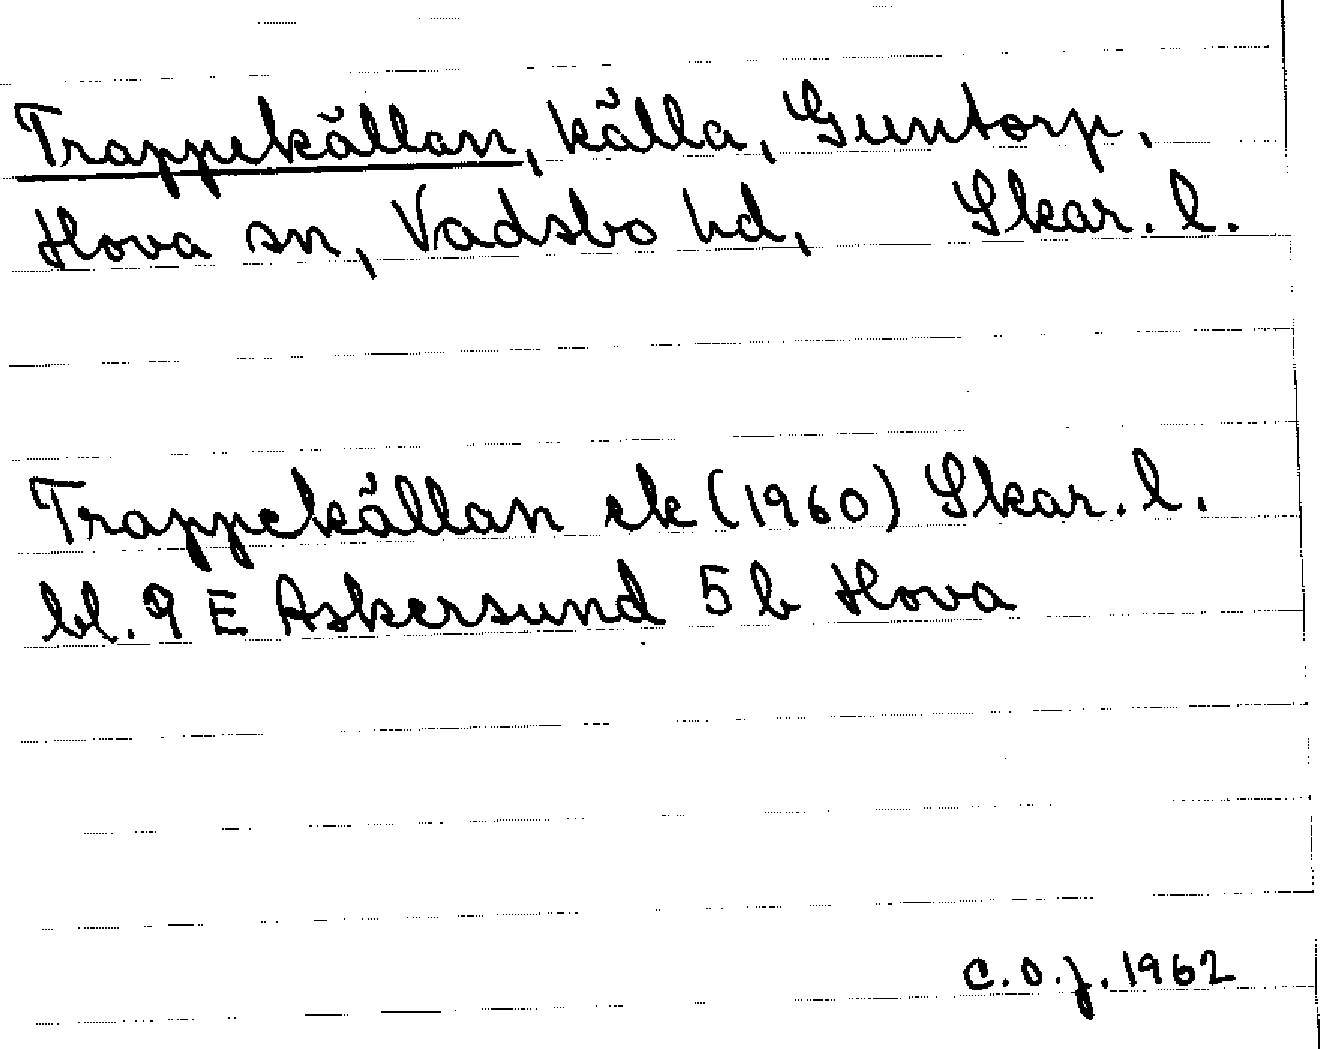 Trappekällan, källa, Guntorp,
Hova sn, Vadsbo hd, Skar. l.
Trappekällan ek (1960) Skar. l.
bl. 9 E Askersund 5 b Hova
C.O.J. 1962